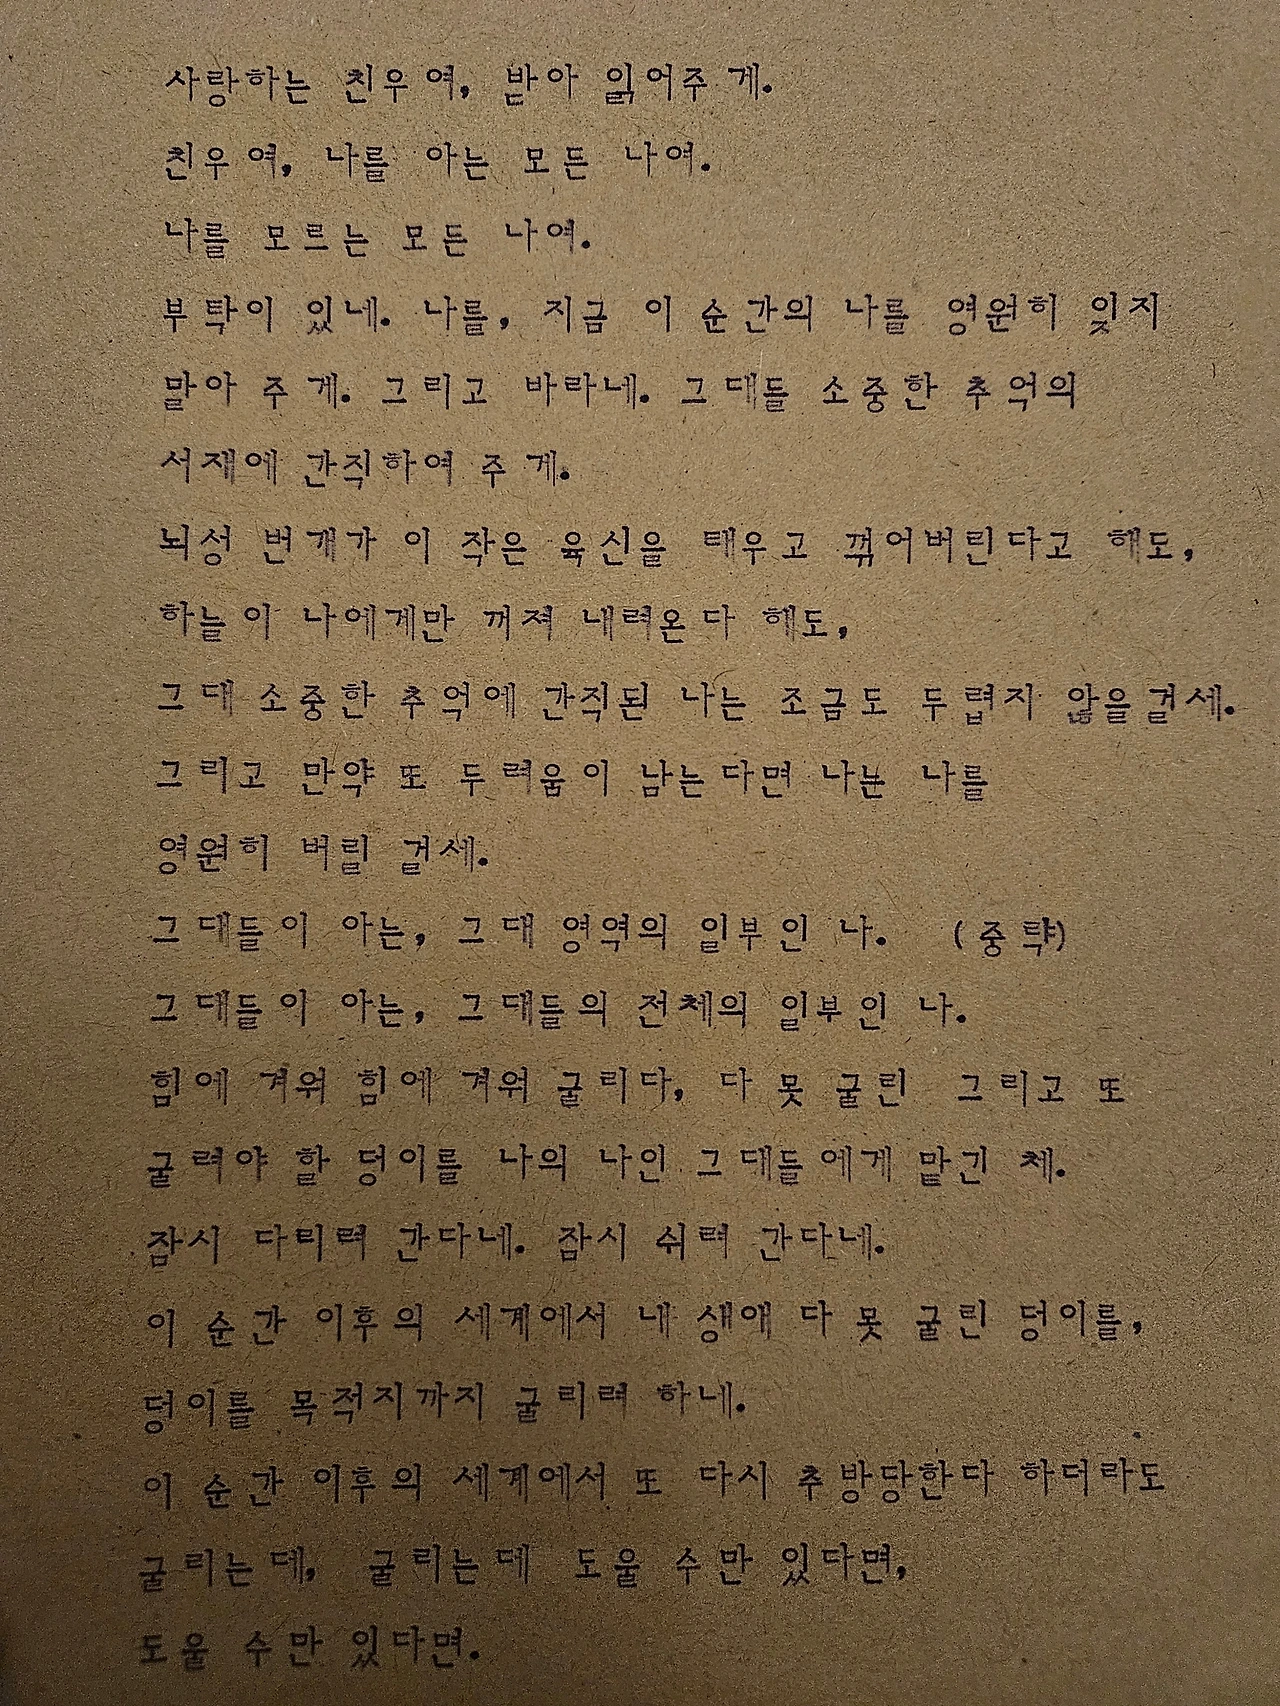 사랑하는 친우여, 받아 읽어주게.
친우여, 나를 아는 모든 나여.
나를 모르는 모든 나여.
부탁이 있네. 나를, 지금 이 순간의 나를 영원히 잊지
말아 주게. 그리고 바라네. 그대들 소중한 추억의
서재에 간직하여 주게.
뇌성 번개가 이 작은 육신을 태우고 꺾어버린다고 해도,
하늘이 나에게만 꺼져 내려온다 해도,
그대 소중한 추억에 간직된 나는 조금도 두렵지 않을걸세.
그리고 만약 또 두려움이 남는다면 나는 나를
영원히 버릴 걸세.
그대들이 아는, 그대 영역의 일부인 나. (중략)
그대들이 아는, 그대들의 전체의 일부인 나.
힘에 겨워 힘에 겨워 굴리다, 다 못 굴린 그리고 또
굴려야 할 덩이를 나의 나인 그대들에게 맡긴 체.
잠시 다리려 간다네. 잠시 쉬려 간다네.
이 순간 이후의 세계에서 내 생애 다 못 굴린 덩이를,
덩이를 목적지까지 굴리려 하네.
이 순간 이후의 세계에서 또 다시 추방당한다 하더라도
굴리는데, 굴리는데 도울 수만 있다면,
도울 수만 있다면.